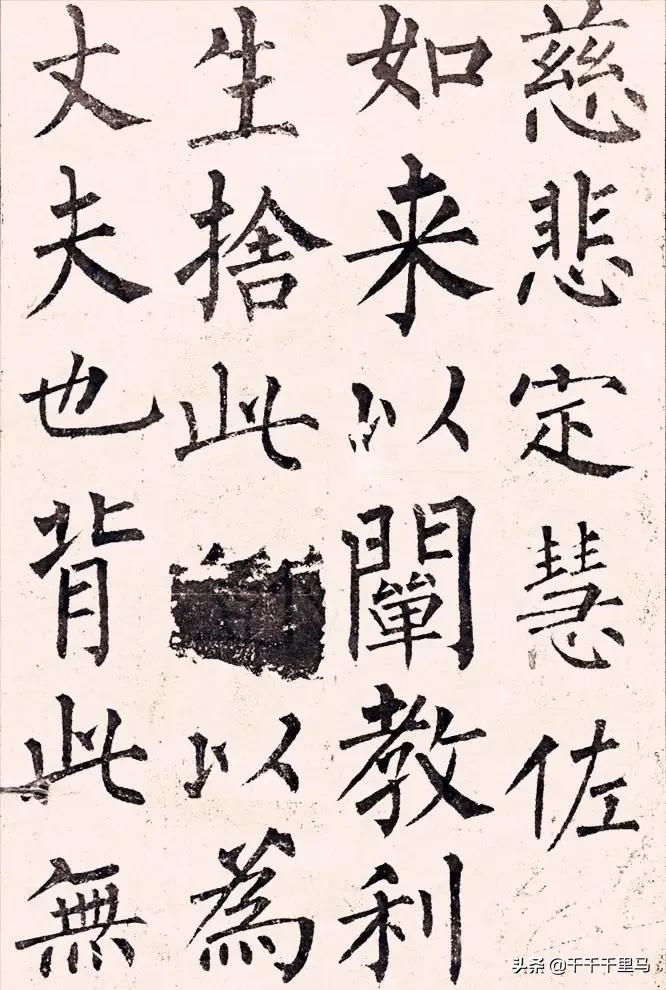 慈悲定慧佐
如来以闡教利
生捨此以為
丈夫也背此無
头条 @千千千里马